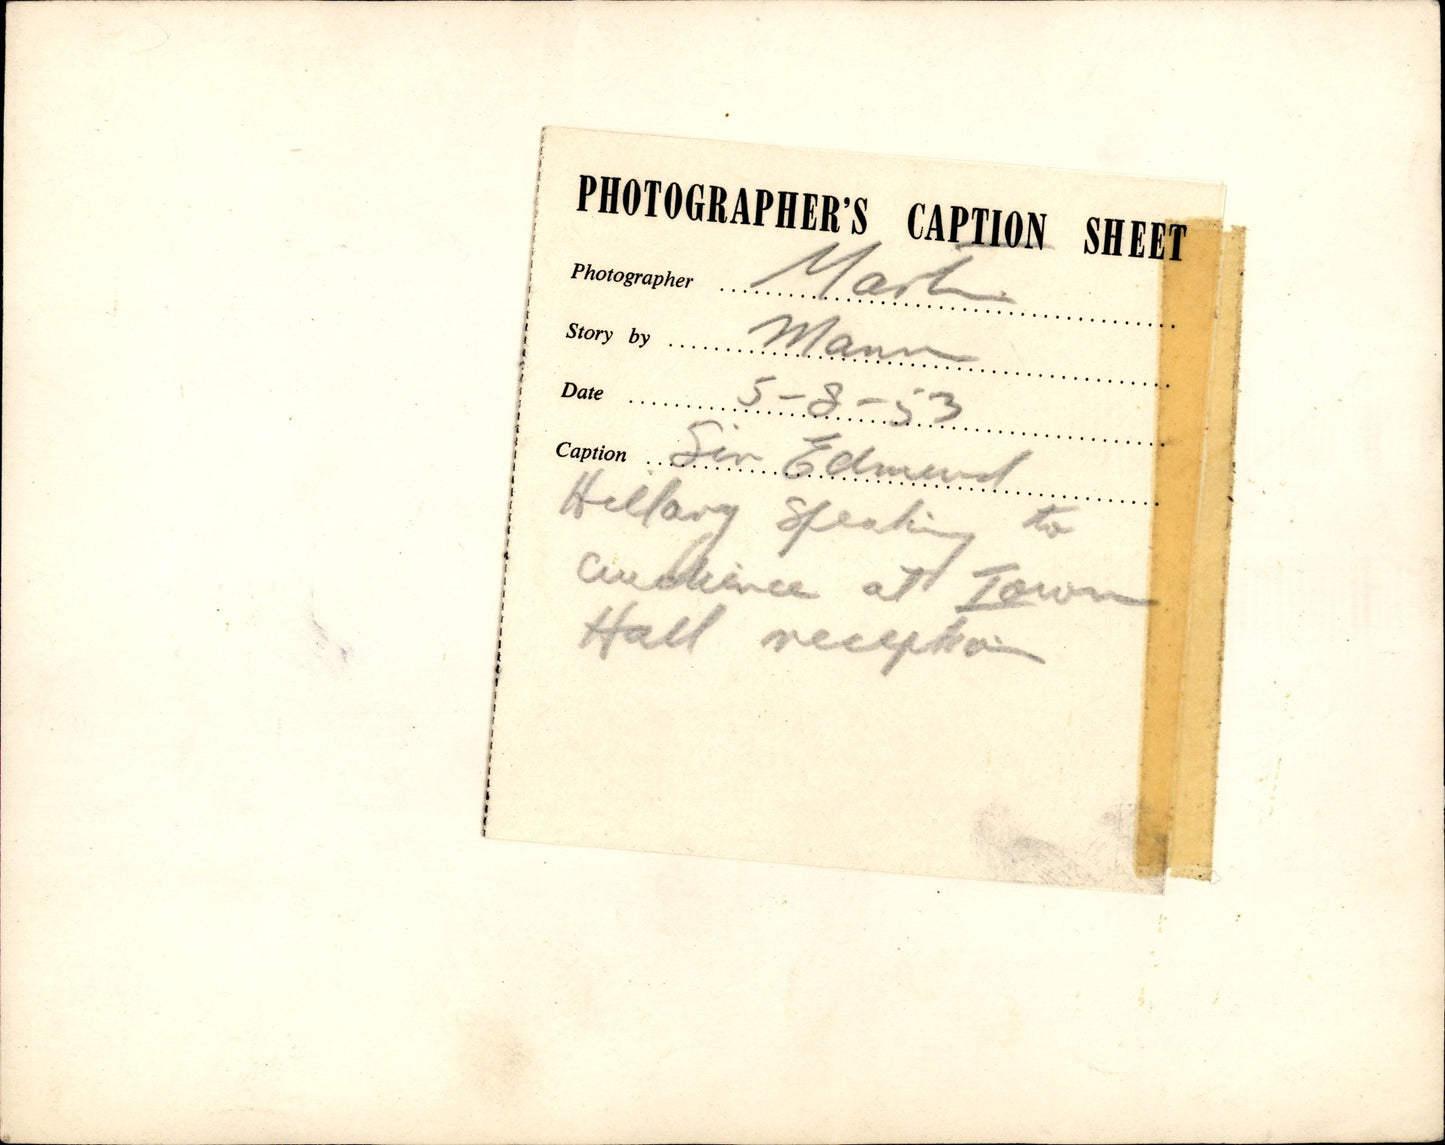 PHOTOGRAPHER'S CAPTION SHEET
Photographer Martin
Story by Mann
Date 5-8-53
Caption Sir Edmund
Hillary speaking to
audience at Town
Hall reception